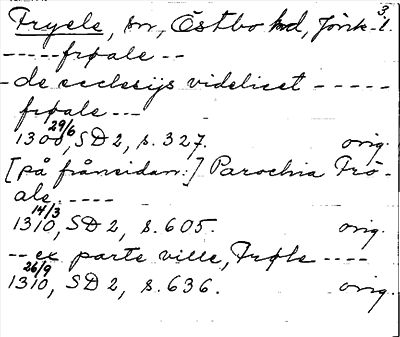 3.
Fryele, sn, Östbo hd, Jönk. l.
-----frøale --
- de ecclesijs videlicet -----
frøale ---
1300 29/6, SD 2, s. 327. orig.
[på frånsidan:] Parochia Frö-
ale, -----
1310 14/3, SD 2, s. 605. orig.
-- ex parte ville, Frøle ----
1310 26/9, SD 2, s. 636. orig.